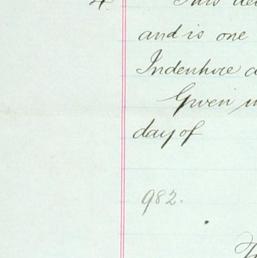 4 This
and is one
Indenture
Given
day of
982.